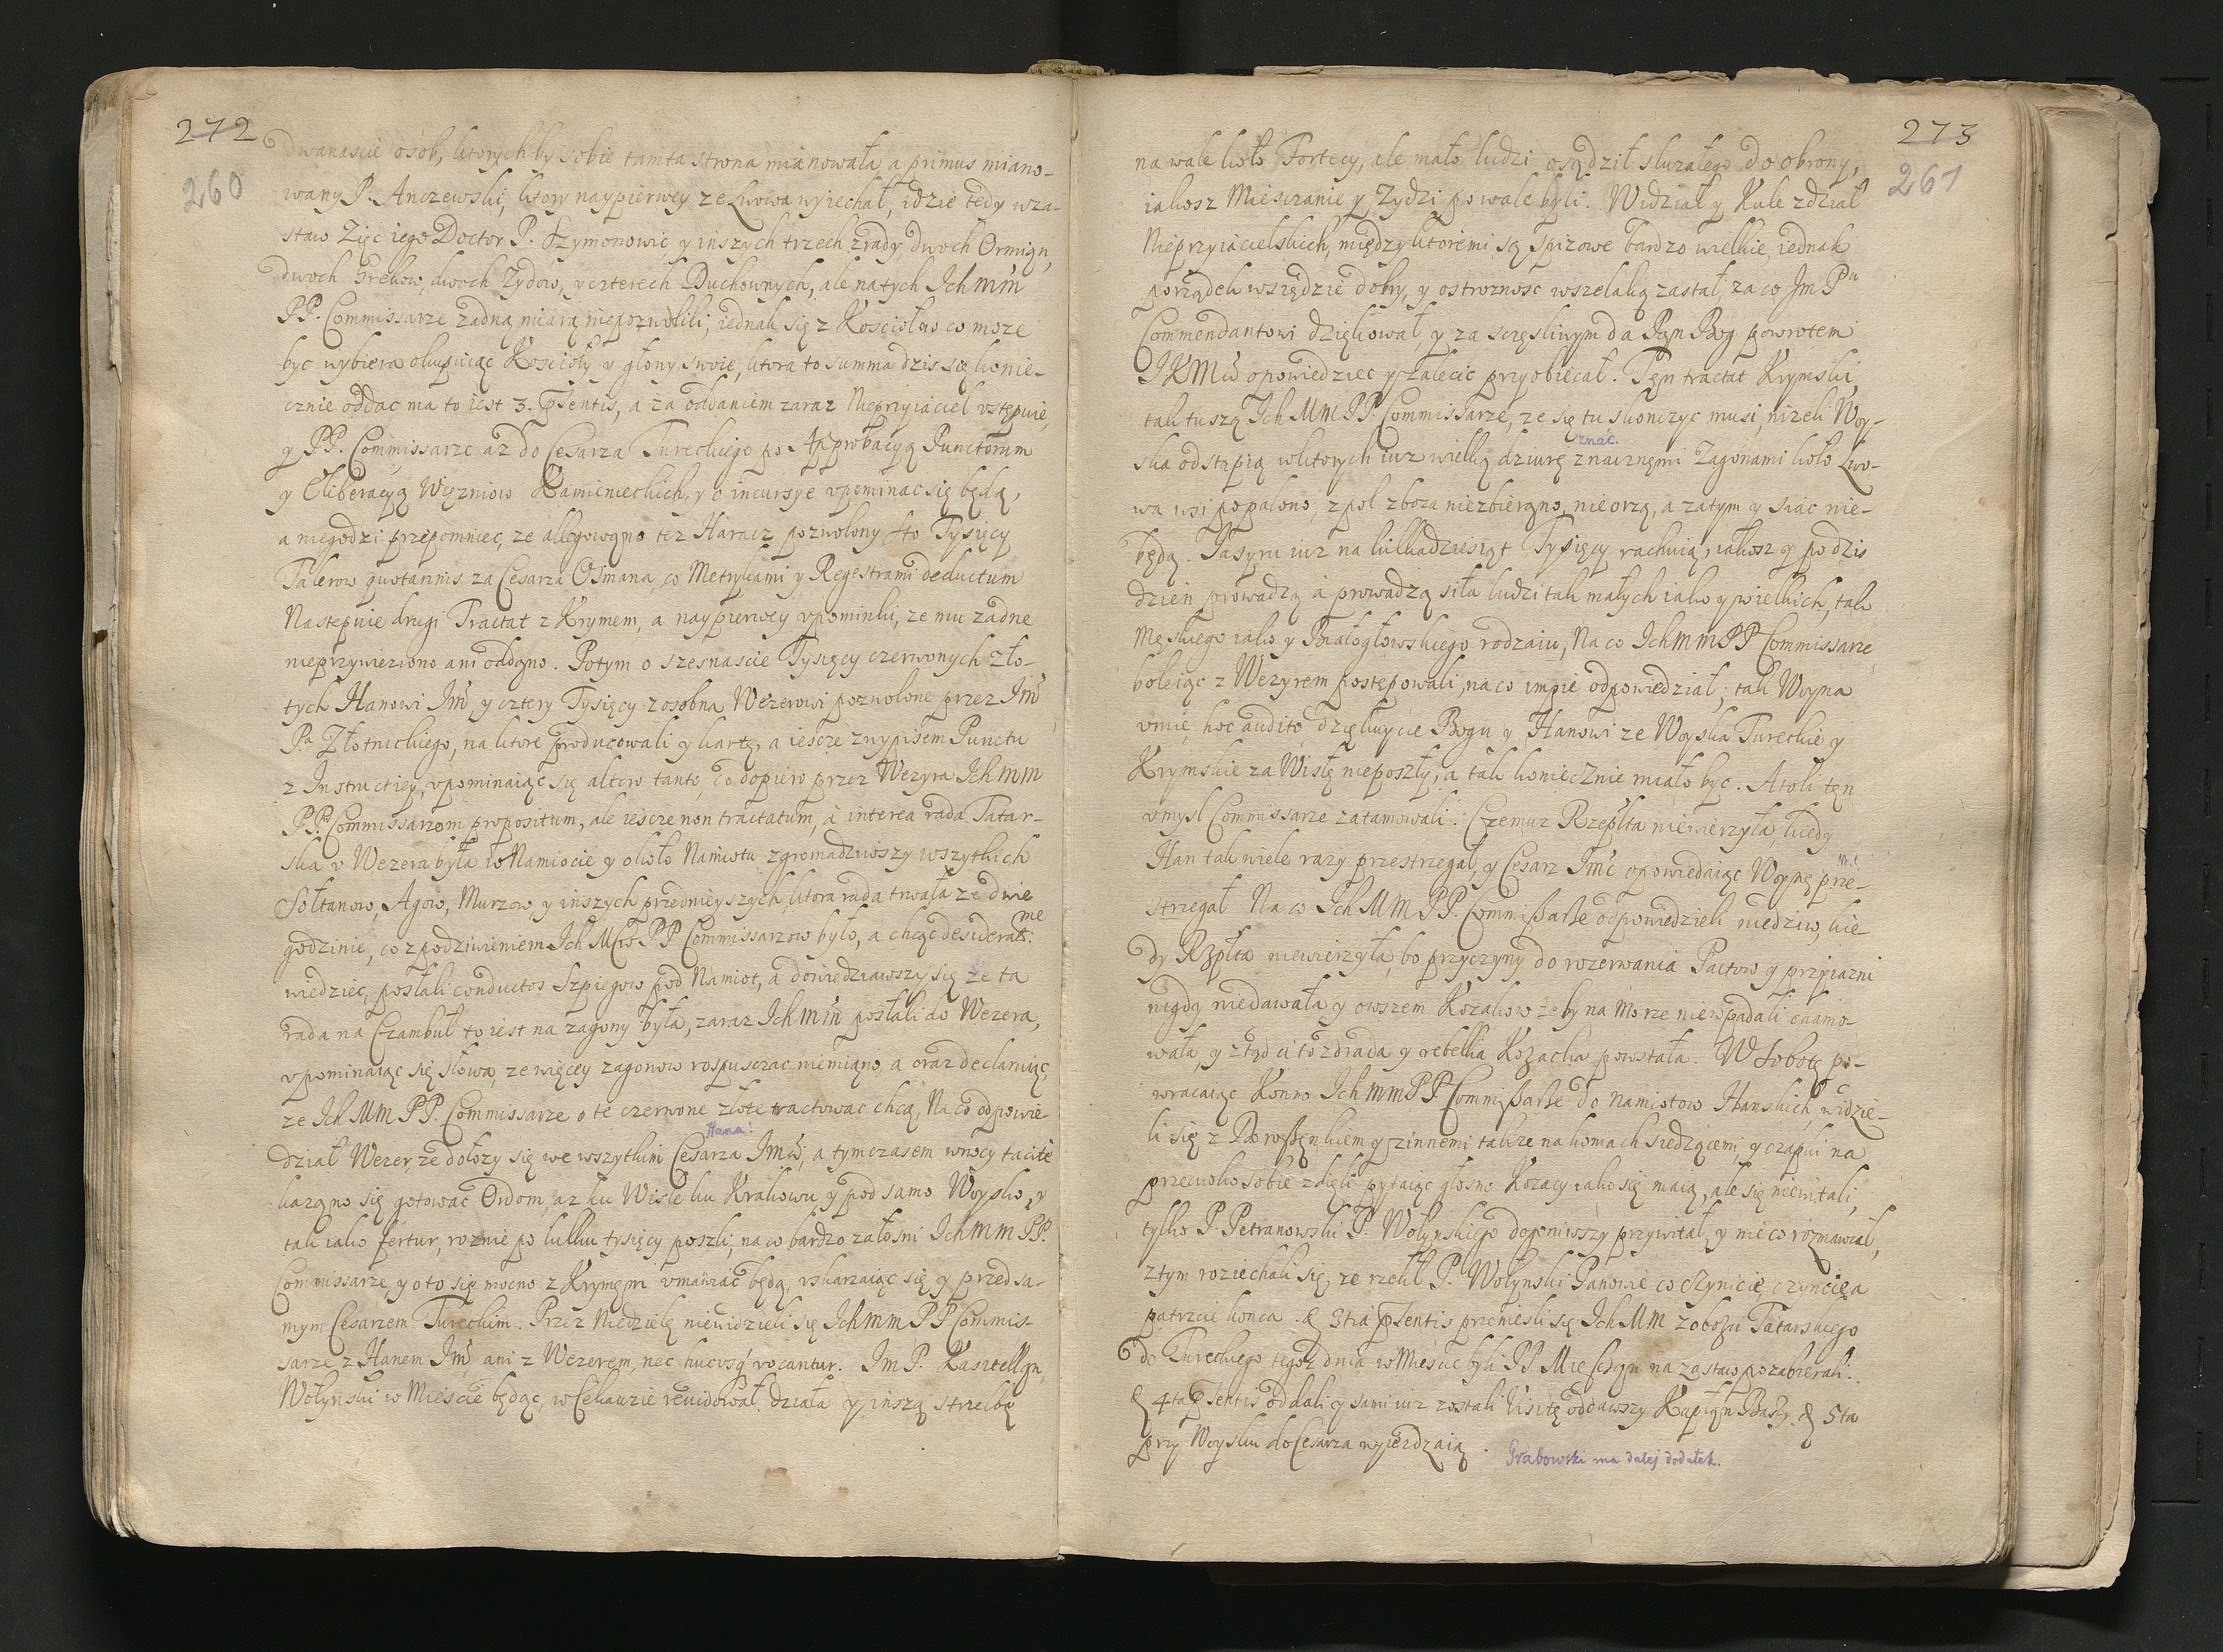 272
260
dwanascie osob, ktorychby sobie tamta strona mianowała, a primus miano-
wany P. Anczewski, ktory naypierwey ze Lwowa wyiechał, idzie tedy wza-
staw Zięc iego Doctor P. Szymonowic y inszych trzech z rady, dwoch Ormian,
dwoch Grekow, dwoch Zydow, y czterech Duchownych, ale na tych Ich mm
PP. Commissarze zadną miarą niepozwolili; iednak się z Kosciołow co moze
byc wybiera okupuiąc Kościoły y głowy swoie, ktora to summa dzis się konie-
cznie oddac ma to iest 3. pñsentis, a za oddaniem zaraz Nieprzyiaciel vstępuie,
y PP. Commissarze az do Cesarza Tureckiego po Approbacyą Punctorum
y Eliberacyą Więzniow Kamienieckich, y o incursye vpominac się będą,
a niegodzi przepomniec, ze allegowano tez Haracz pozwolony sto Tysięcy
Talerow quotannis za Cesarza Osmana, co Metrykami y Regestrami deductum
Nastepuie drugi Tractat z Krymem, a naypierwey vpominki, ze mu zadne
nieprzywieziono ani oddano. Potym o szesnascie Tysięcy czerwonych zło-
tych Hanowi Jm̃, y cztery Tysięcy zosobna Wezerowi pozwolone przez Jm̃
Pª Złotnickiego, na ktore producowali y kartę, a iescze z wypisem Punctu
z Instructiey, vpominaiąc się altero tanto, co dopiero przez Wezyra Ich mm
PP. Commissarzom propositum, ale iescze non tractatum, à interea rada Tatar-
ska v Wezera była w Namiocie y około Namiotu zgromadziwszy wszytkich
Sołtanow, Agow, Murzow, y inszych przednieyszych, ktora rada trwała ze dwie
godzinie, co z podziwieniem Ich Mciow PP Commissarzow było, a chcąc desideratme
wiedziec, posłali conductos Szpiegow pod Namiot, a dowiedziawszy się ze ta
rada na Czambuł to iest na zagony była, zaraz Ich mm posłali do Wezera,
vpominaiąc się słowa, ze więcey zagonow rospusczac niemiano, a oraz declaruiąc,
ze Ich Mm PP. Commissarze o te czerwone złote tractowac chcą, Na co odpowie
Hana!
dział Wezer, ze dołozy się we wszytkim Cesarza Jmci, a tymczasem w nocy tacitè
kazano się gotowac Ordom, az ku Wisle ku Krakowu y pod samo Woysko, y
tak iako fertur, roznie po kilku tysięcy poszli, na co bardzo załosni Ich mm PP.
Commissarze, y o to się mocno z Krymem vmawiac będą, vskarzaiąc się y przed sa-
mym Cesarzem Tureckim. Przez Niedzielę niewidzieli się Ich mm PP Commis-
sarze z Hanem Jm̃, ani z Wezerem, nec hucusq̃ vocantur. Jm P. Kasztellan
Wołynski w Miescie będąc, w Cekauzie rewidował działa y inszą strzelbę
273
261
na wale koło Fortecy, ale mało ludzi osądził służałego do obrony,
iakosz Miesczanie y Zydzi po wale byli. Widział y Kule z dział
Nieprzyiacielskich, między ktoremi są spizowe bardzo wielkie, iednak
porządek wszędzie dobry, y ostroznosc wszelaką zastał, za co Jm Pu
Commendantowi dziękował, y za szczęsliwym da Pan Bog powrotem
JKMci opowiedziec y zalecic przyobiecał. Tęn tractat Krymski,
tak tuszą Ich Mm PP. Commissarze, ze się tu skonczyc musi, nizeli Woy-
znać.
ska odstąpią w ktorych iuz wielką dziurę znacznęmi Zagonami koło Lwo-
wa wsi popalono, z pol zboza niezbierano, nie orzą, a zatym y siac nie-
będą. Jasyru iuz na kilkadziesiąt Tysięcy rachuią, iakosz y po dzis
dzien prowadzą à prowadzą siła ludzi tak małych iako y wielkich, tak
Męskiego iako y Białogłowskiego rodzaiu, Na co Ich mm PP Commissarze
boleiąc z Wezyrem postępowali, na co impiè odpowiedział; tak Woyna
vmie, hoc audito, dziękuycie Bogu y Hanowi ze Woyska Tureckie y
Krymskie za Wisłę nieposzły, a tak koniecznie miało byc. Atoli ten
vmysł Commissarze zatamowali. Czemuz Rzeplta niewierzyła, kiedy
Han tak wiele razy przestrzegał, y Cesarz Jmc opowiedaiąc Woynę prze-
strzegał Na co Ich MM PP. Commißarße odpowiedzieli niedziw, kie
dy Rzplta niewierzyła, bo przyczyny do rozerwania Pactow y przyiazni
nigdy niedawała y owszem Kozakow zeby na Morze niewpadali chamo-
wała, y ztąd ci to zdrada y rebellia Kozacka powstała. W Sobotę po-
wracaiąc Konno Ich mm PP Commißarße do Namiotow Hanskich, widzie-
li się z Doroßęnkiem y z innemi takze na koniach siedzącemi, y czapki na
przeciwko sobie zdięli pytaiąc głosno Kozacy iako się maią, ale się niewitali,
tylko P. Petranowski P. Wołynskiego dogoniwszy przywitał, y nieco rozmawiał,
z tym roziechali się, ze rzekł P. Wołynski Panowie co czynicie, czyncie a
patrzcie konca. & 3tia pñsentis przeniesli się Ich MM z obozu Tatarskiego
do Tureckiego tegoz dnia w Miescie byli PP Miesczan na zastaw pozabierali.
& 4ta pñsentis oddali y sami iuz zostali Visitę oddawszy Kapitan Baßy. & 5ta
przy Woysku do Cesarza wyiezdzaią.
Grabowski ma dalej dodatek.